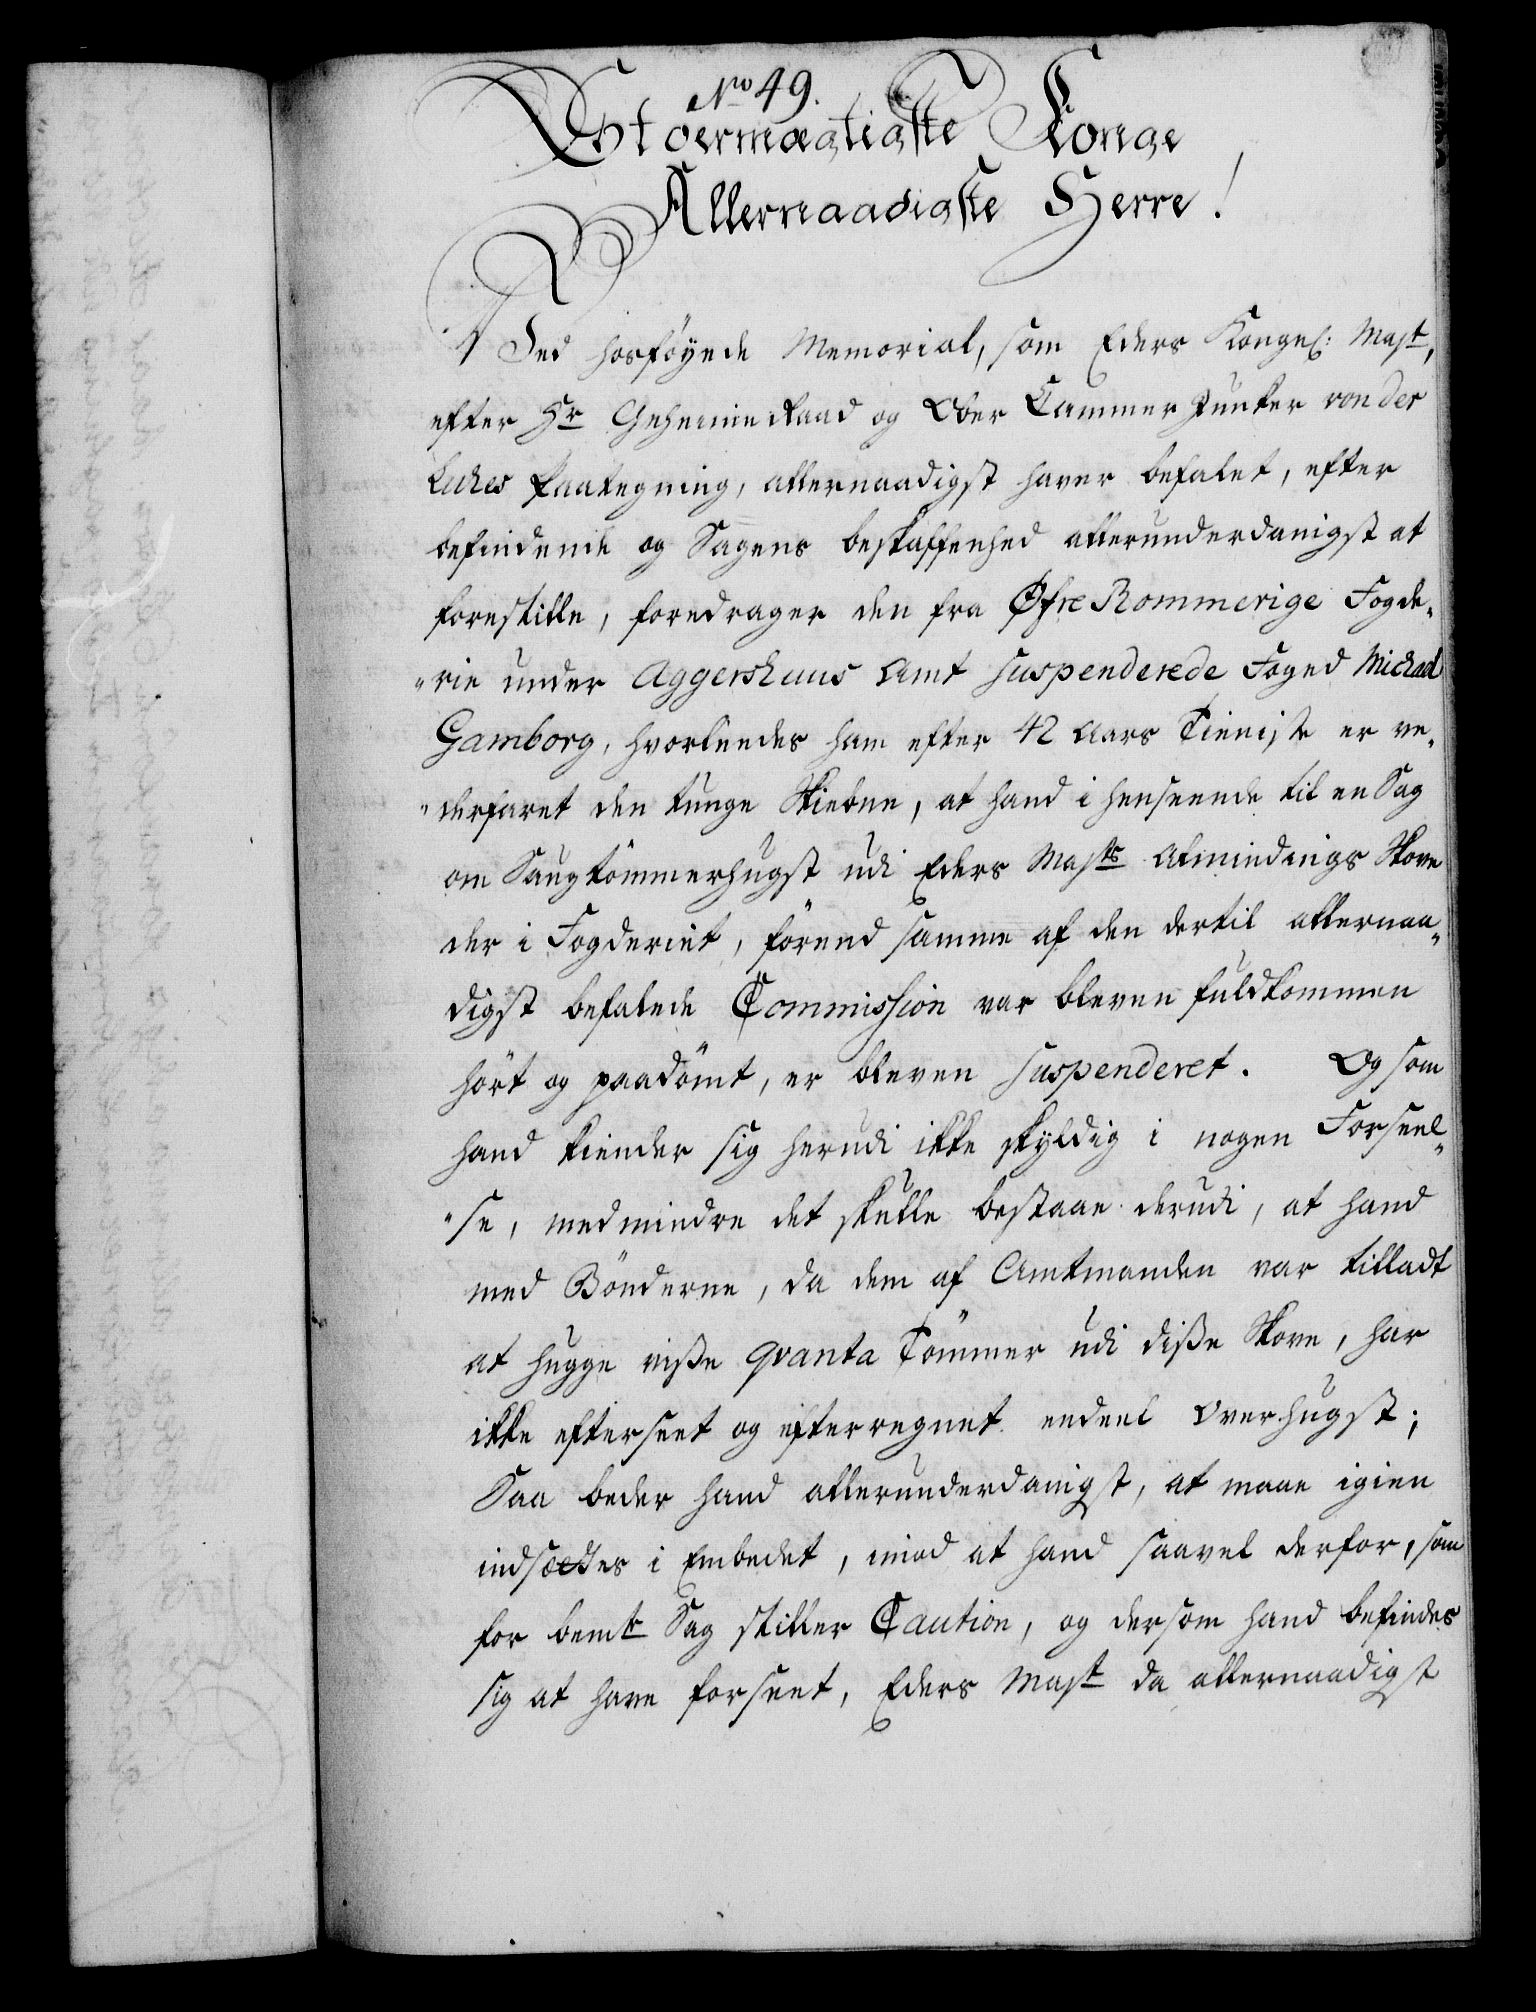 No 49.
Stoermægtigste Konge
Allernaadigste Herre!
Ved hosföyede Memorial, som Eders Kongel: Mayst,
efter Hr Geheime Raad og Ober Cammer Junker von der
Lühes Paategning, allernaadigst haver befalet, efter
befindende og Sagens beskaffenhed allerunderdanigst at
forestille, foredrager den fra Øfre Rommerige Fogde-
rie under Aggershuus Amt suspenderede Foged Michael
Gamborg, hvorledes ham efter 42 Aars Tieniste er ve-
derfaret den tunge Skiebne, at hand i henseende til en Sag
om Saugtömmerhugst udi Eders Maysts Almindings Skove
der i Fogderiet, förend samme af den dertil allernaa-
digst befalede Commission var bleven fuldkommen
hört og paadömt, er bleven suspenderet. Og som
hand kiender sig herudi ikke skyldig i nogen Forseel-
se, medmindre det skulle bestaae derudi, at hand
med Bönderne, da dem af Amtmanden var tilladt
at hugge visse qvanta Tömmer udi disse Skove, har
ikke efterseet og efterregnet endeel Overhugst;
Saa beder hand allerunderdanigst, at maae igien
indsættes i Embedet, imod at hand saavel derfor, som
for bemte Sag stiller Caution, og dersom hand befindes
sig at have forseet, Eders Mayst da allernaadigst